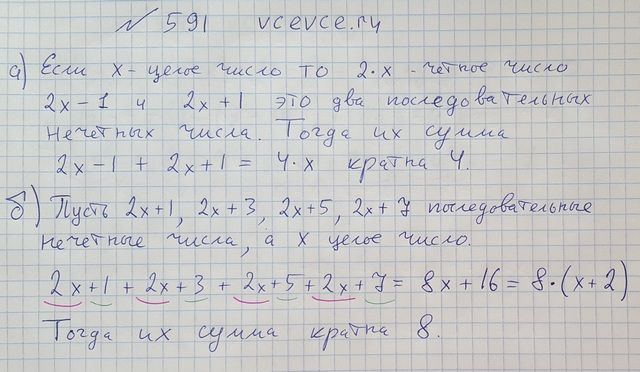 № 591 vcevce.ru
а) Если x - целое число то 2·x - четное число
2x-1 и 2x+1 это два последовательных
нечетных числа. Тогда их сумма
2x-1 + 2x+1 = 4·x кратна 4.
б) Пусть 2x+1, 2x+3, 2x+5, 2x+7 последовательные
нечетные числа, а x целое число.
2x+1 + 2x+3 + 2x+5 + 2x+7 = 8x+16 = 8·(x+2)
Тогда их сумма кратна 8.